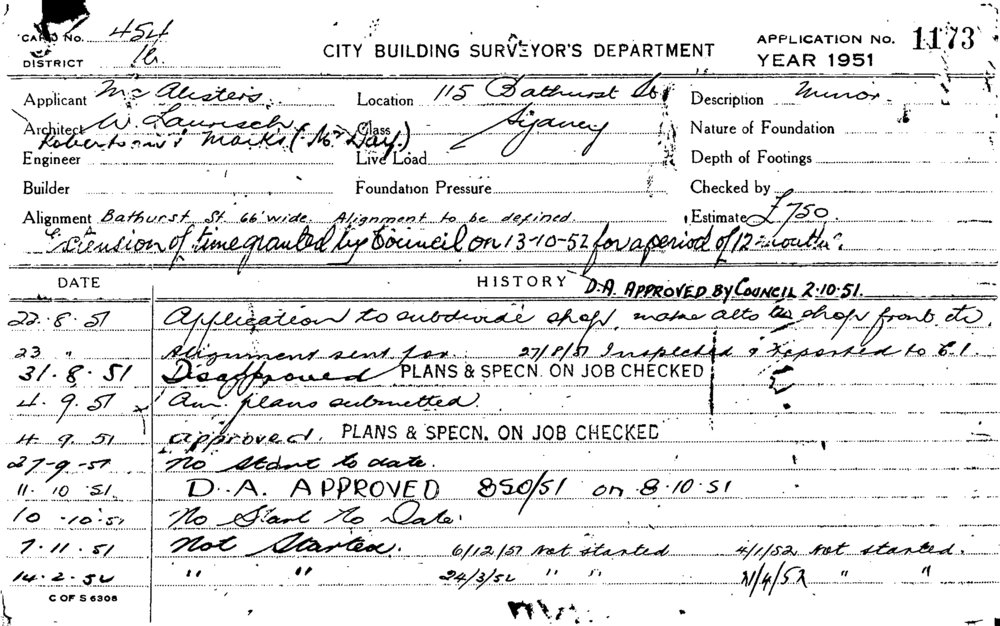 CARD No. 454
DISTRICT
CITY BUILDING SURVEYOR'S DEPARTMENT
APPLICATION No. 1173
YEAR 1951
Applicant McAlisters Location 115 Bathurst St Description Minor
Architect W. Laurisch Class Sydney Nature of Foundation
Robertson & Marks (Mr Day.)
Engineer Live Load Depth of Footings
Builder Foundation Pressure Checked by
Alignment Bathurst St. 66' wide. Alignment to be defined. Estimate £750
Extension of time granted by Council on 13-10-52 for a period of 12 months.
DATE HISTORY D.A. APPROVED BY COUNCIL 2.10.51.
22.8.51 Application to subdivide shop, make alts to shop front etc
23 " Alignment sent for. 27/8/51 Inspected & reported to C.I.
31.8.51 Disapproved PLANS & SPECN. ON JOB CHECKED
4.9.51 Am. plans submitted.
4 9.51 Approved. PLANS & SPECN. ON JOB CHECKED
27-9-51 No start to date.
11.10.51. D.A. APPROVED 850/51 on 8.10.51
10.10.51 No Start To Date.
7.11.51 Not Started. 6/12/51 Not started 4/1/52 Not started.
14.2.52 " " 24/3/52 " " 21/4/52 " "
C OF S 6306